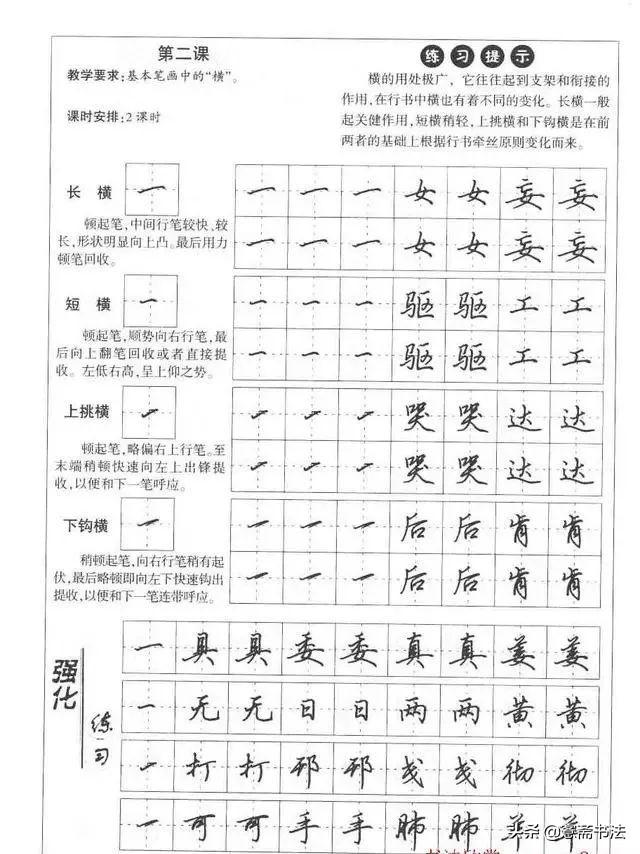 第二课
教学要求:基本笔画中的“横”。
课时安排:2课时
练习提示
横的用处极广，它往往起到支架和衔接的
作用,在行书中横也有着不同的变化。长横一般
起关健作用,短横稍轻,上挑横和下钩横是在前
两者的基础上根据行书牵丝原则变化而来。
长横 一
顿起笔,中间行笔较快、较
长,形状明显向上凸。最后用力
顿笔回收。
一 一 一 女 女 妄 妄
一 一 一 女 女 妄 妄
短横 一
顿起笔,顺势向右行笔,最
后向上翻笔回收或者直接提
收。左低右高,呈上仰之势。
一 一 一 驱 驱 工 工
一 一 一 驱 驱 工 工
上挑横 一
顿起笔,略偏右上行笔。至
末端稍顿快速向左上出锋提
收,以便和下一笔呼应。
一 一 一 哭 哭 达 达
一 一 一 哭 哭 达 达
下钩横 一
稍顿起笔,向右行笔稍有起
伏,最后略顿即向左下快速钩出
提收,以便和下一笔连带呼应。
一 一 一 后 后 肯 肯
一 一 一 后 后 肯 肯
强化
练习
一 具 具 委 委 真 真 姜 姜
一 无 无 日 日 两 两 黄 黄
一 打 打 邳 邳 戋 戋 彻 彻
一 可 可 手 手 肺 肺 华 华
头条@慧斋书法